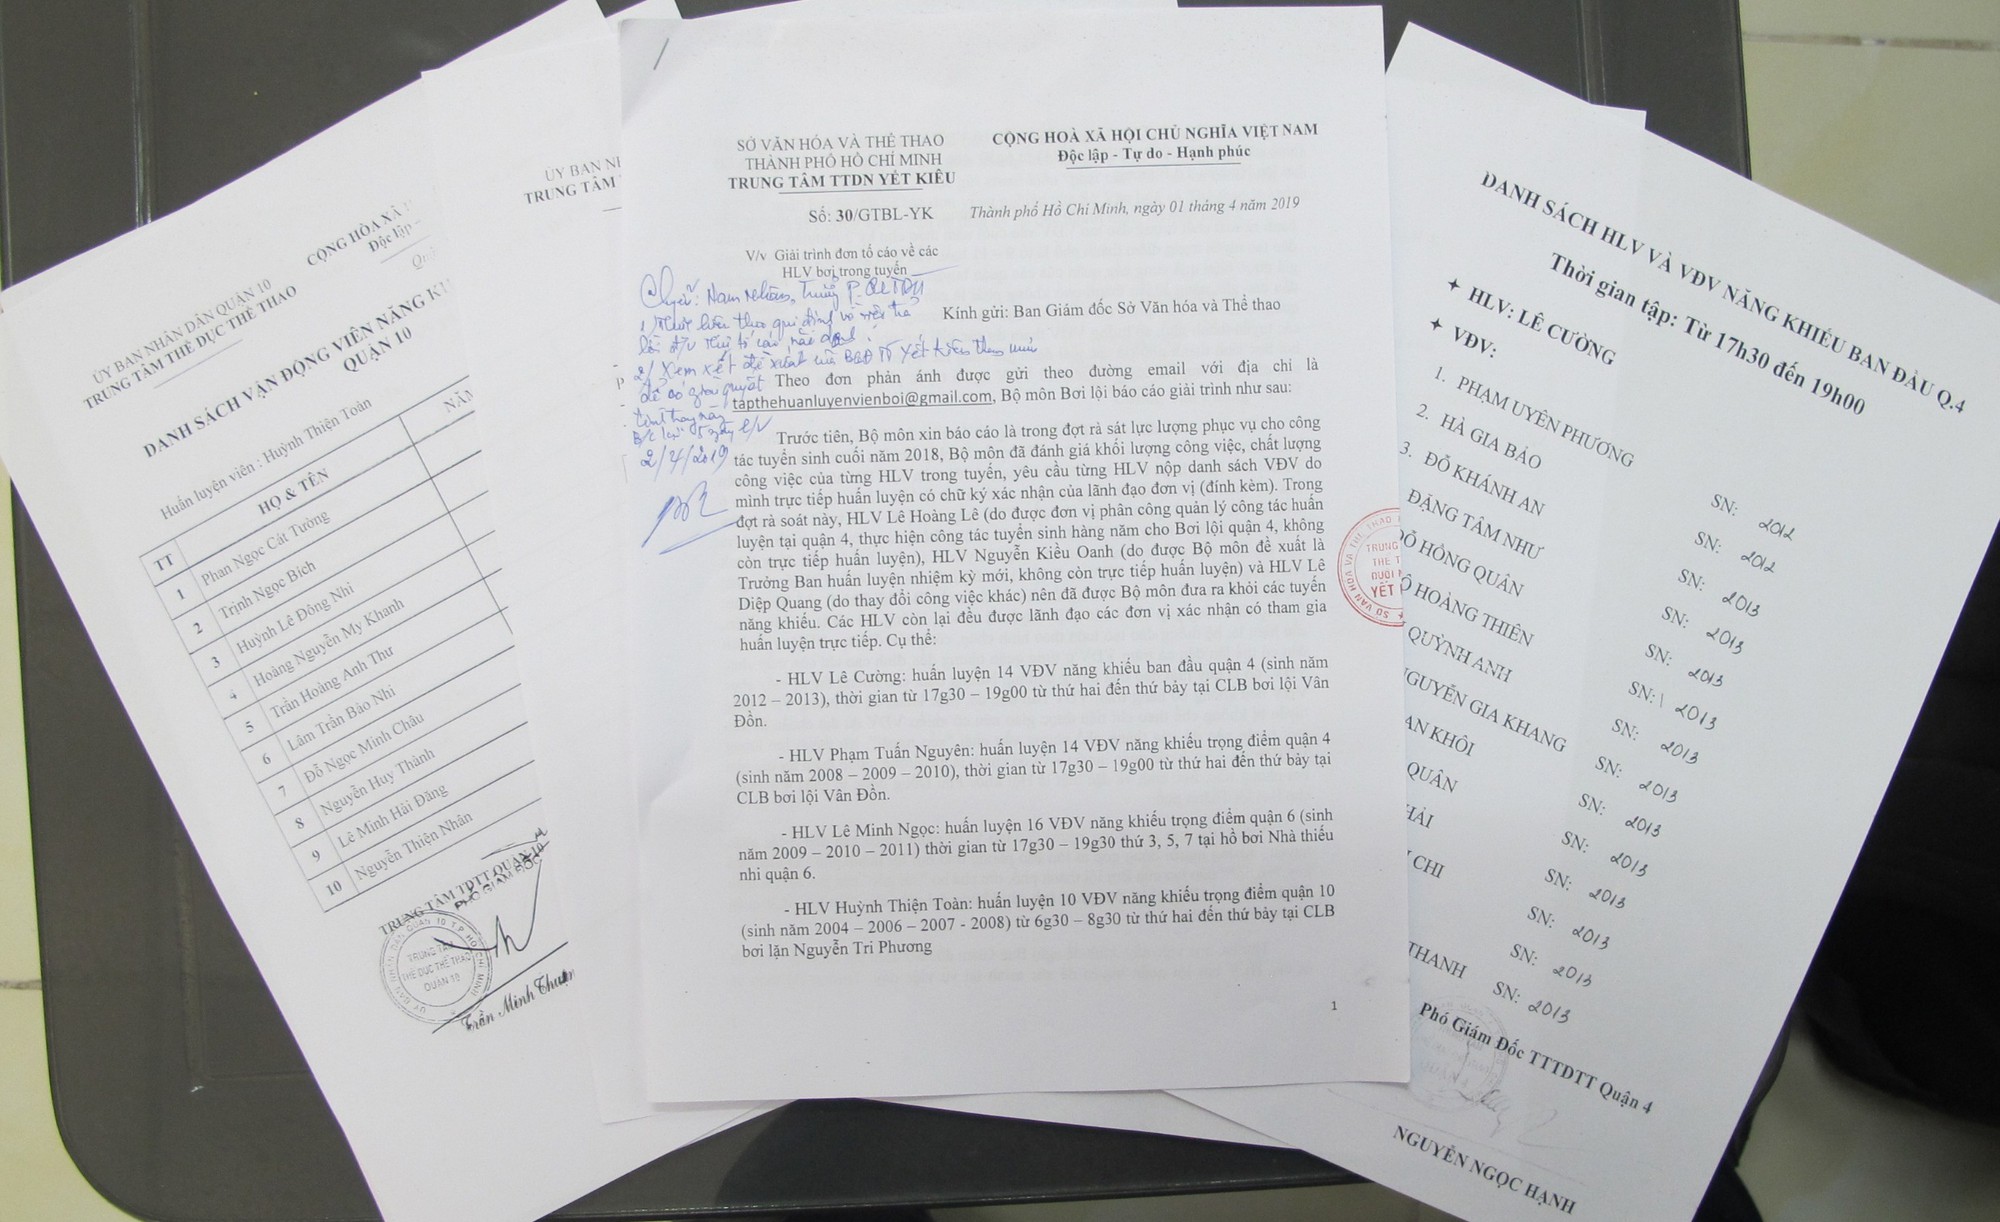 ỦY BAN NHÂN DÂN QUẬN 10
TRUNG TÂM THỂ DỤC THỂ THAO
CỘNG HÒA XÃ
Độc lập -
DANH SÁCH VẬN ĐỘNG VIÊN NĂNG KH
QUẬN 10
Huấn luyện viên : Huỳnh Thiện Toàn
TT HỌ & TÊN NĂM
1 Phan Ngọc Cát Tường
2 Trịnh Ngọc Bích
3 Huỳnh Lê Đông Nhi
4 Hoàng Nguyễn My Khanh
5 Trần Hoàng Anh Thư
6 Lâm Trần Bảo Nhi
7 Đỗ Ngọc Minh Châu
8 Nguyễn Huy Thành
9 Lê Minh Hải Đăng
10 Nguyễn Thiện Nhân
TRUNG TÂM TDTT QUẬN 10
PHÓ GIÁM ĐỐC
TRUNG TÂM
THỂ DỤC THỂ THAO
QUẬN 10
Trần Minh Thuận
ỦY BAN NH
TRUNG TÂM
SỞ VĂN HÓA VÀ THỂ THAO
THÀNH PHỐ HỒ CHÍ MINH
TRUNG TÂM TTDN YẾT KIÊU
Số: 30/GTBL-YK
V/v Giải trình đơn tố cáo về các
HLV bơi trong tuyến
CỘNG HOÀ XÃ HỘI CHỦ NGHĨA VIỆT NAM
Độc lập - Tự do - Hạnh phúc
Thành phố Hồ Chí Minh, ngày 01 tháng 4 năm 2019
Kính gửi: Ban Giám đốc Sở Văn hóa và Thể thao
2/4/2019
Theo đơn phản ánh được gửi theo đường email với địa chỉ là
tapthehuanluyenvienboi@gmail.com, Bộ môn Bơi lội báo cáo giải trình như sau:
Trước tiên, Bộ môn xin báo cáo là trong đợt rà sát lực lượng phục vụ cho công
tác tuyển sinh cuối năm 2018, Bộ môn đã đánh giá khối lượng công việc, chất lượng
công việc của từng HLV trong tuyến, yêu cầu từng HLV nộp danh sách VĐV do
mình trực tiếp huấn luyện có chữ ký xác nhận của lãnh đạo đơn vị (đính kèm). Trong
đợt rà soát này, HLV Lê Hoàng Lê (do được đơn vị phân công quản lý công tác huấn
luyện tại quận 4, thực hiện công tác tuyển sinh hàng năm cho Bơi lội quận 4, không
còn trực tiếp huấn luyện), HLV Nguyễn Kiều Oanh (do được Bộ môn đề xuất là
Trưởng Ban huấn luyện nhiệm kỳ mới, không còn trực tiếp huấn luyện) và HLV Lê
Diệp Quang (do thay đổi công việc khác) nên đã được Bộ môn đưa ra khỏi các tuyến
năng khiếu. Các HLV còn lại đều được lãnh đạo các đơn vị xác nhận có tham gia
huấn luyện trực tiếp. Cụ thể:
- HLV Lê Cường: huấn luyện 14 VĐV năng khiếu ban đầu quận 4 (sinh năm
2012 – 2013), thời gian từ 17g30 – 19g00 từ thứ hai đến thứ bảy tại CLB bơi lội Vân
Đồn.
- HLV Phạm Tuấn Nguyên: huấn luyện 14 VĐV năng khiếu trọng điểm quận 4
(sinh năm 2008 – 2009 – 2010), thời gian từ 17g30 – 19g00 từ thứ hai đến thứ bảy tại
CLB bơi lội Vân Đồn.
- HLV Lê Minh Ngọc: huấn luyện 16 VĐV năng khiếu trọng điểm quận 6 (sinh
năm 2009 – 2010 – 2011) thời gian từ 17g30 – 19g30 thứ 3, 5, 7 tại hồ bơi Nhà thiếu
nhi quận 6.
- HLV Huỳnh Thiện Toàn: huấn luyện 10 VĐV năng khiếu trọng điểm quận 10
(sinh năm 2004 – 2006 – 2007 - 2008) từ 6g30 – 8g30 từ thứ hai đến thứ bảy tại CLB
bơi lặn Nguyễn Tri Phương
1
DANH SÁCH HLV VÀ VĐV NĂNG KHIẾU BAN ĐẦU Q.4
Thời gian tập: Từ 17h30 đến 19h00
HLV: LÊ CƯỜNG
VĐV:
1. PHẠM UYÊN PHƯƠNG SN: 2012
2. HÀ GIA BẢO SN: 2012
3. ĐỖ KHÁNH AN SN: 2013
ĐẶNG TÂM NHƯ SN: 2013
ĐỖ HỒNG QUÂN SN: 2013
HOÀNG THIÊN SN: 2013
QUỲNH ANH SN: 2013
NGUYỄN GIA KHANG SN: 2013
AN KHÔI SN: 2013
QUÂN SN: 2013
HẢI SN: 2013
CHI SN: 2013
SN: 2013
THANH SN: 2013
Phó Giám Đốc TTTDTT Quận 4
NGUYỄN NGỌC HẠNH